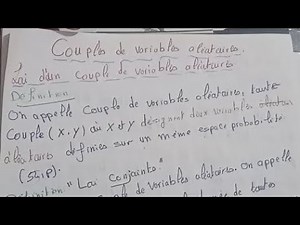 Couples de variables aléatoires.
1. Loi d'un Couple de variables aléatoires
Définition
On appelle Couple de variables aléatoires, toute
Couple (X, Y) où X et Y désignant deux variables
aléatoires définies sur un même espace probabilisé
"Loi Conjointe."
Couple de variables aléatoires. On appelle
de toutes